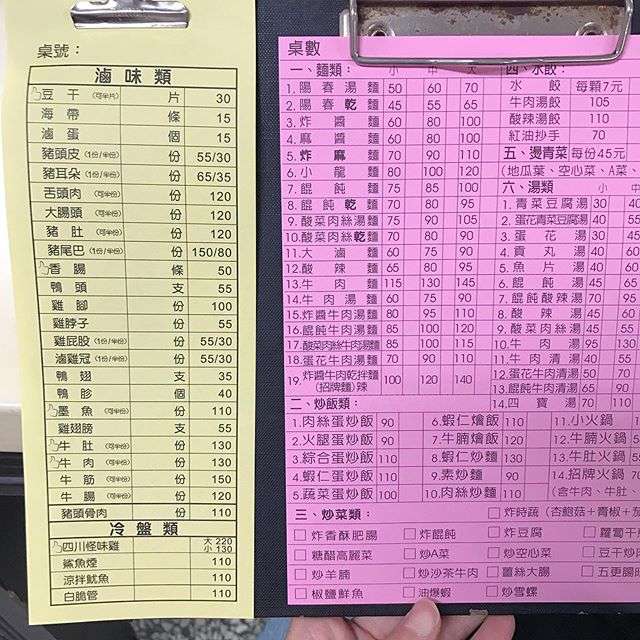 桌號：
滷味類
豆干(可半片) 片 30
海帶 條 15
滷蛋 個 15
豬頭皮(1份/半份) 份 55/30
豬耳朵(1份/半份) 份 65/35
舌頭肉 份 120
大腸頭 份 120
豬肚(可半份) 份 120
豬尾巴(1份/半份) 份 150/80
香腸 條 50
鴨頭 支 55
雞腳 份 100
雞脖子 份 55
雞屁股(1份/半份) 份 55/30
滷雞冠(1份/半份) 份 55/30
鴨翅 支 35
鴨胗 個 40
墨魚(可半份) 份 110
雞翅膀 支 55
牛肚(可半份) 份 130
牛肉(可半份) 份 130
牛筋(可半份) 份 150
牛腸(可半份) 份 120
豬頭骨肉 份 110
冷盤類
四川怪味雞 大 220 小 130
鯊魚煙 110
涼拌魷魚 110
白脆管 110
桌數
一、麵類： 小 中 大
1. 陽春湯麵 50 60 70
2. 陽春乾麵 45 55 65
3. 炸醬麵 60 80 100
4. 麻醬麵 60 80 100
5. 炸麻麵 70 90 110
6. 小龍麵 80 100 120
7. 餛飩麵 65 80 95
8. 餛飩乾麵 70 80 95
9. 酸菜肉絲湯麵 75 90 105
10. 酸菜肉絲乾麵 70 85 100
11. 大滷麵 60 80 100
12. 酸辣麵 65 80 95
13. 牛肉麵 115 130 145
14. 牛肉湯麵 60 75 90
15. 炸醬牛肉湯麵 80 100 120
16. 餛飩牛肉湯麵 85 100 115
17. 酸菜肉絲牛肉湯麵 85 100 115
18. 蛋花牛肉湯麵 70 85 100
19. 炸醬牛肉乾拌麵(招牌麵)辣 100 120 140
二、炒飯類：
1. 肉絲蛋炒飯 90
2. 火腿蛋炒飯 90
3. 綜合蛋炒飯 110
4. 蝦仁蛋炒飯 110
5. 蔬菜蛋炒飯 100
6. 蝦仁燴飯 110
7. 牛腩燴飯 120
8. 蝦仁炒麵 110
9. 素炒麵 90
10. 肉絲炒麵 110
11. 小火鍋
12. 牛腩火鍋
13. 牛肚火鍋
14. 招牌火鍋
(含牛肉、牛肚、
三、炒菜類：
炸時蔬(杏鮑菇+青椒+
炸香酥肥腸 炸餛飩 炸豆腐 蘿蔔干
糖醋高麗菜 炒A菜 炒空心菜 豆干炒
炒羊腩 炒沙茶牛肉 薑絲大腸 五更腸
椒鹽鮮魚 油爆蝦 炒雪螺
四、水餃：
水餃 每顆7元
牛肉湯餃 105
酸辣湯餃 110
紅油抄手 70
五、燙青菜 每份45元
(地瓜葉、空心菜、A菜、
六、湯類 小 中
1. 青菜豆腐湯 30 40
2. 蛋花青菜豆腐湯 40 55
3. 蛋花湯 30 45
4. 貢丸湯 40 60
5. 魚片湯 45 60
6. 餛飩湯 45 60
7. 餛飩酸辣湯 70 95
8. 酸辣湯 45 60
9. 酸菜肉絲湯 45 60
11. 牛肉清湯 40 55
12. 蛋花牛肉清湯 50 70
13. 餛飩牛肉清湯 65 90
14. 四寶湯 70 110